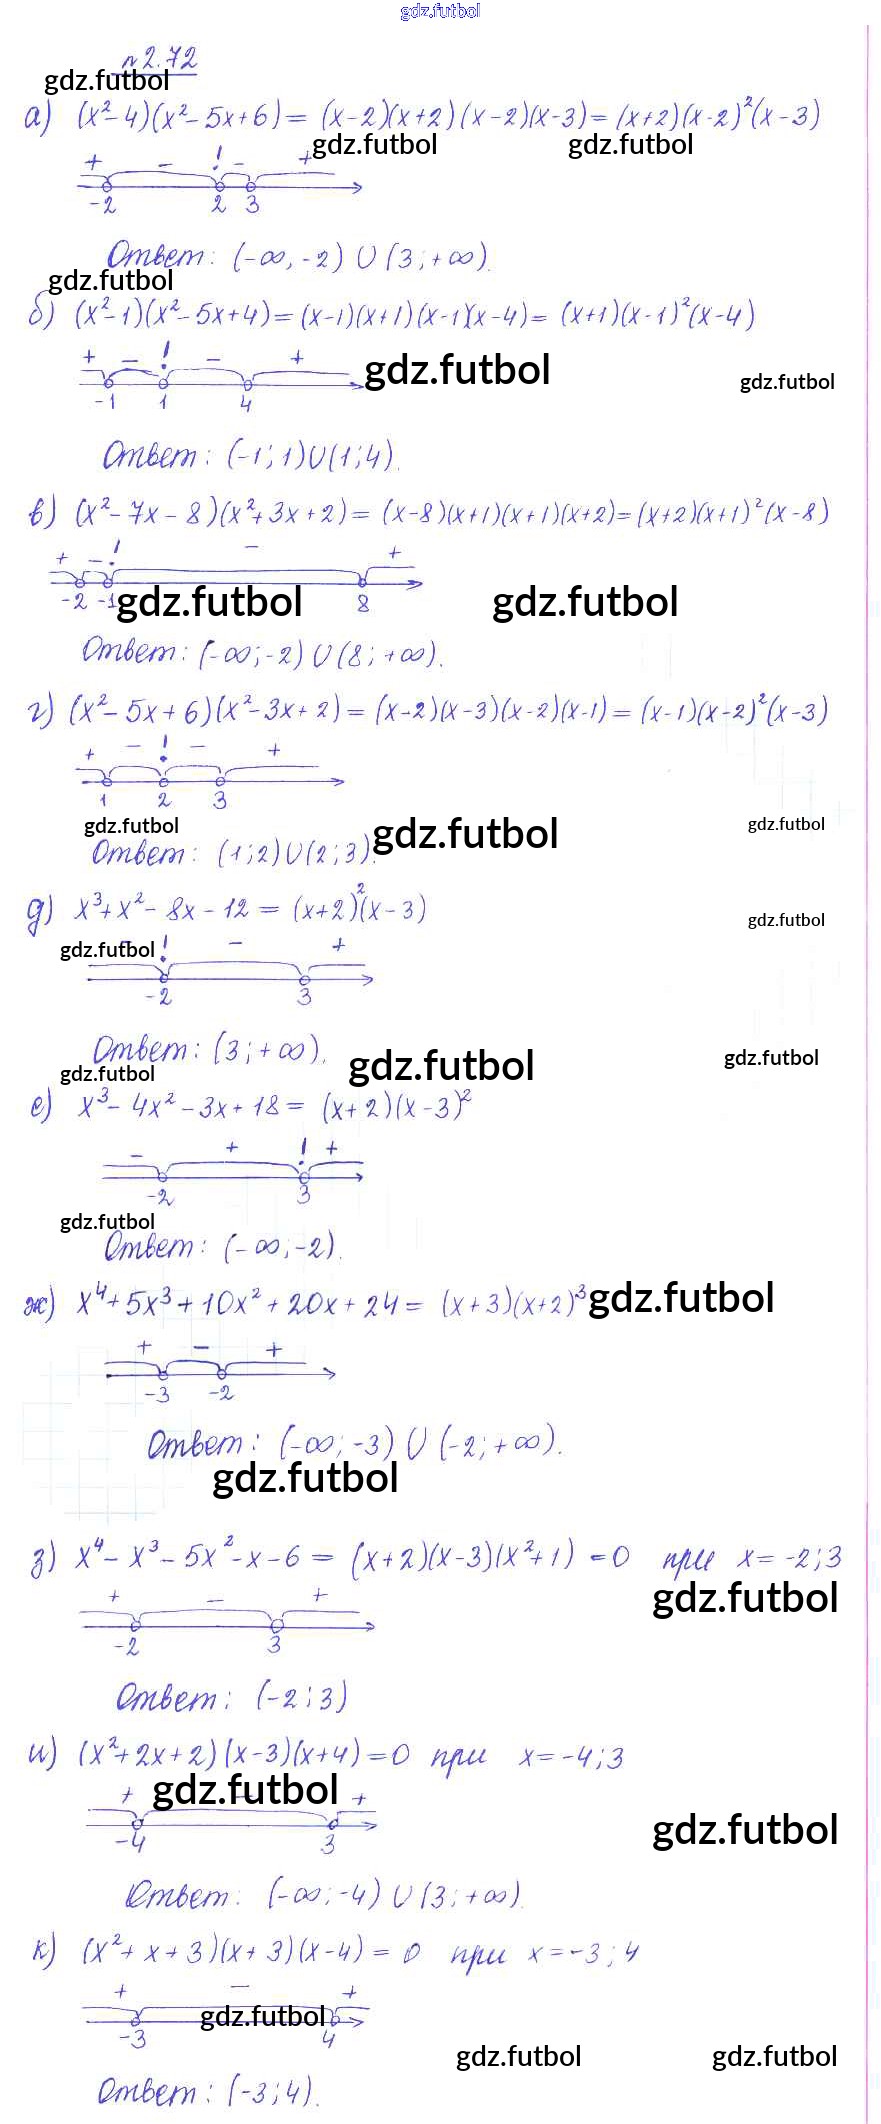 gdz.futbol
№2.72
gdz.futbol
а) (x²-4)(x²-5x+6) = (x-2)(x+2)(x-2)(x-3) = (x+2)(x-2)²(x-3)
gdz.futbol gdz.futbol
+ - ! - +
-2 2 3
Ответ: (-∞, -2) U (3; +∞).
gdz.futbol
б) (x²-1)(x²-5x+4) = (x-1)(x+1)(x-1)(x-4) = (x+1)(x-1)²(x-4)
+ - ! - +
gdz.futbol gdz.futbol
-1 1 4
Ответ: (-1; 1)U(1; 4).
в) (x²-7x-8)(x²+3x+2) = (x-8)(x+1)(x+1)(x+2) = (x+2)(x+1)²(x-8)
+ - ! - +
-2 -1 8
gdz.futbol gdz.futbol
Ответ: (-∞; -2) U (8; +∞).
г) (x²-5x+6)(x²-3x+2) = (x-2)(x-3)(x-2)(x-1) = (x-1)(x-2)²(x-3)
+ - ! - +
1 2 3
gdz.futbol gdz.futbol gdz.futbol
Ответ: (1; 2)U(2; 3).
д) x³+x²-8x-12 = (x+2)²(x-3)
gdz.futbol
gdz.futbol
- ! - +
-2 3
Ответ: (3; +∞).
gdz.futbol gdz.futbol
gdz.futbol
е) x³-4x²-3x+18 = (x+2)(x-3)²
- + ! +
-2 3
gdz.futbol
Ответ: (-∞; -2).
ж) x⁴+5x³+10x²+20x+24 = (x+3)(x+2)³
gdz.futbol
+ - +
-3 -2
Ответ: (-∞; -3) U (-2; +∞).
gdz.futbol
з) x⁴-x³-5x²-x-6 = (x+2)(x-3)(x²+1) = 0 при x = -2; 3
gdz.futbol
+ - +
-2 3
Ответ: (-2; 3)
и) (x²+2x+2)(x-3)(x+4) = 0 при x = -4; 3
gdz.futbol
+ - +
-4 3
gdz.futbol
Ответ: (-∞; -4) U (3; +∞).
к) (x²+x+3)(x+3)(x-4) = 0 при x = -3; 4
+ - +
gdz.futbol
-3 4
gdz.futbol gdz.futbol
Ответ: (-3; 4).